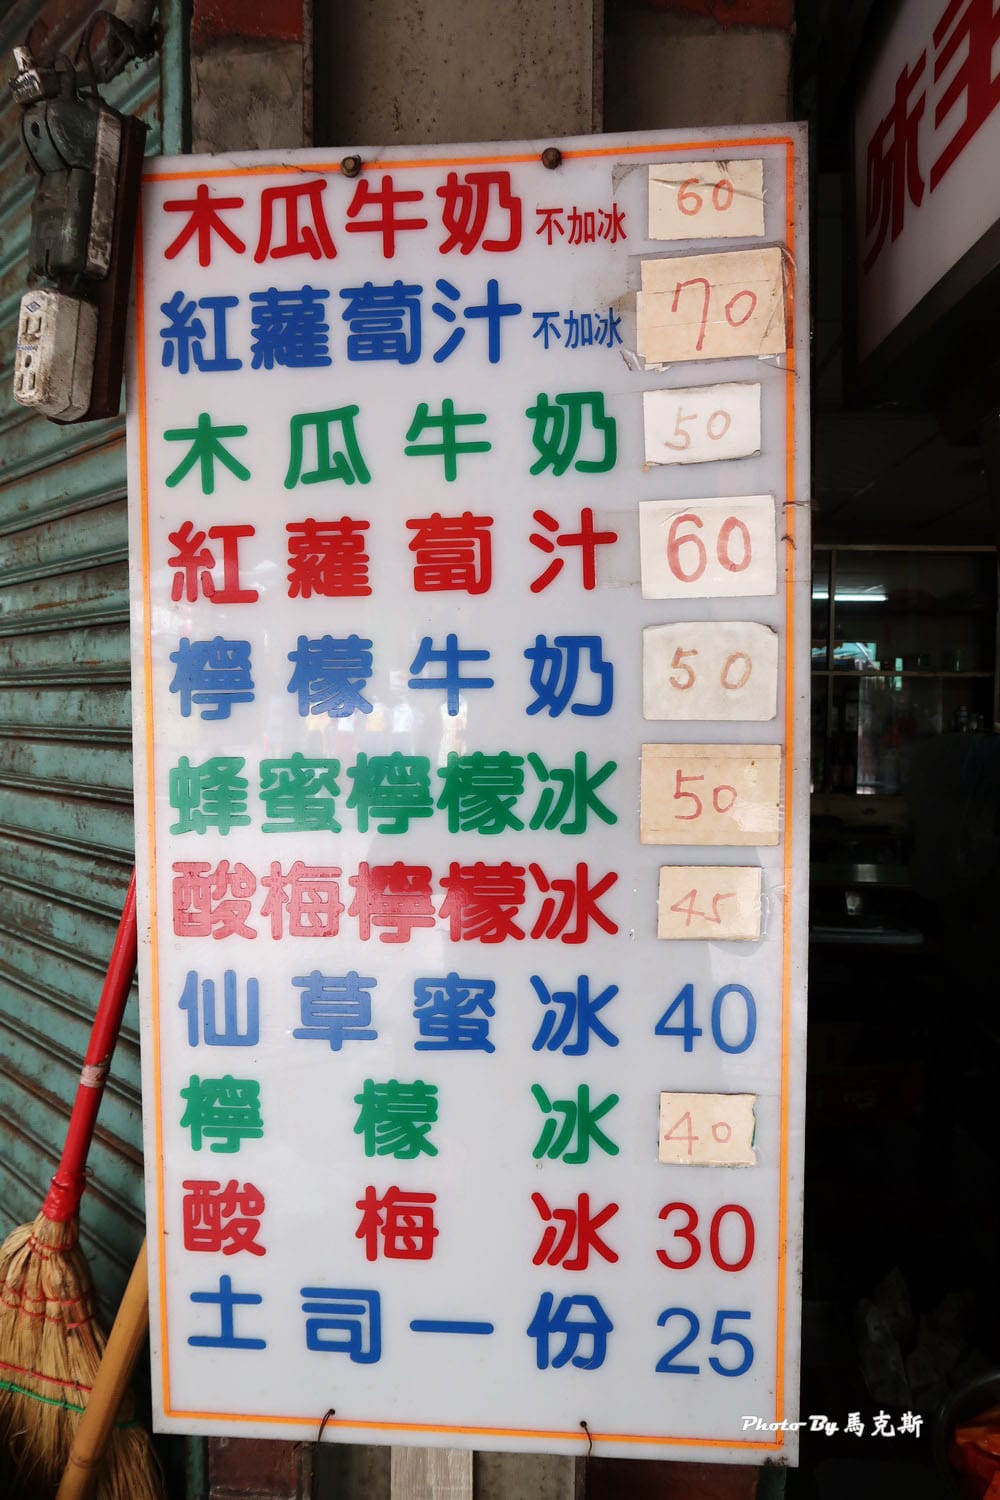 木瓜牛奶 不加冰 60
紅蘿蔔汁 不加冰 70
木瓜牛奶 50
紅蘿蔔汁 60
檸檬牛奶 50
蜂蜜檸檬冰 50
酸梅檸檬冰 45
仙草蜜冰 40
檸檬冰 40
酸梅冰 30
土司一份 25
味王
Photo By 馬克斯